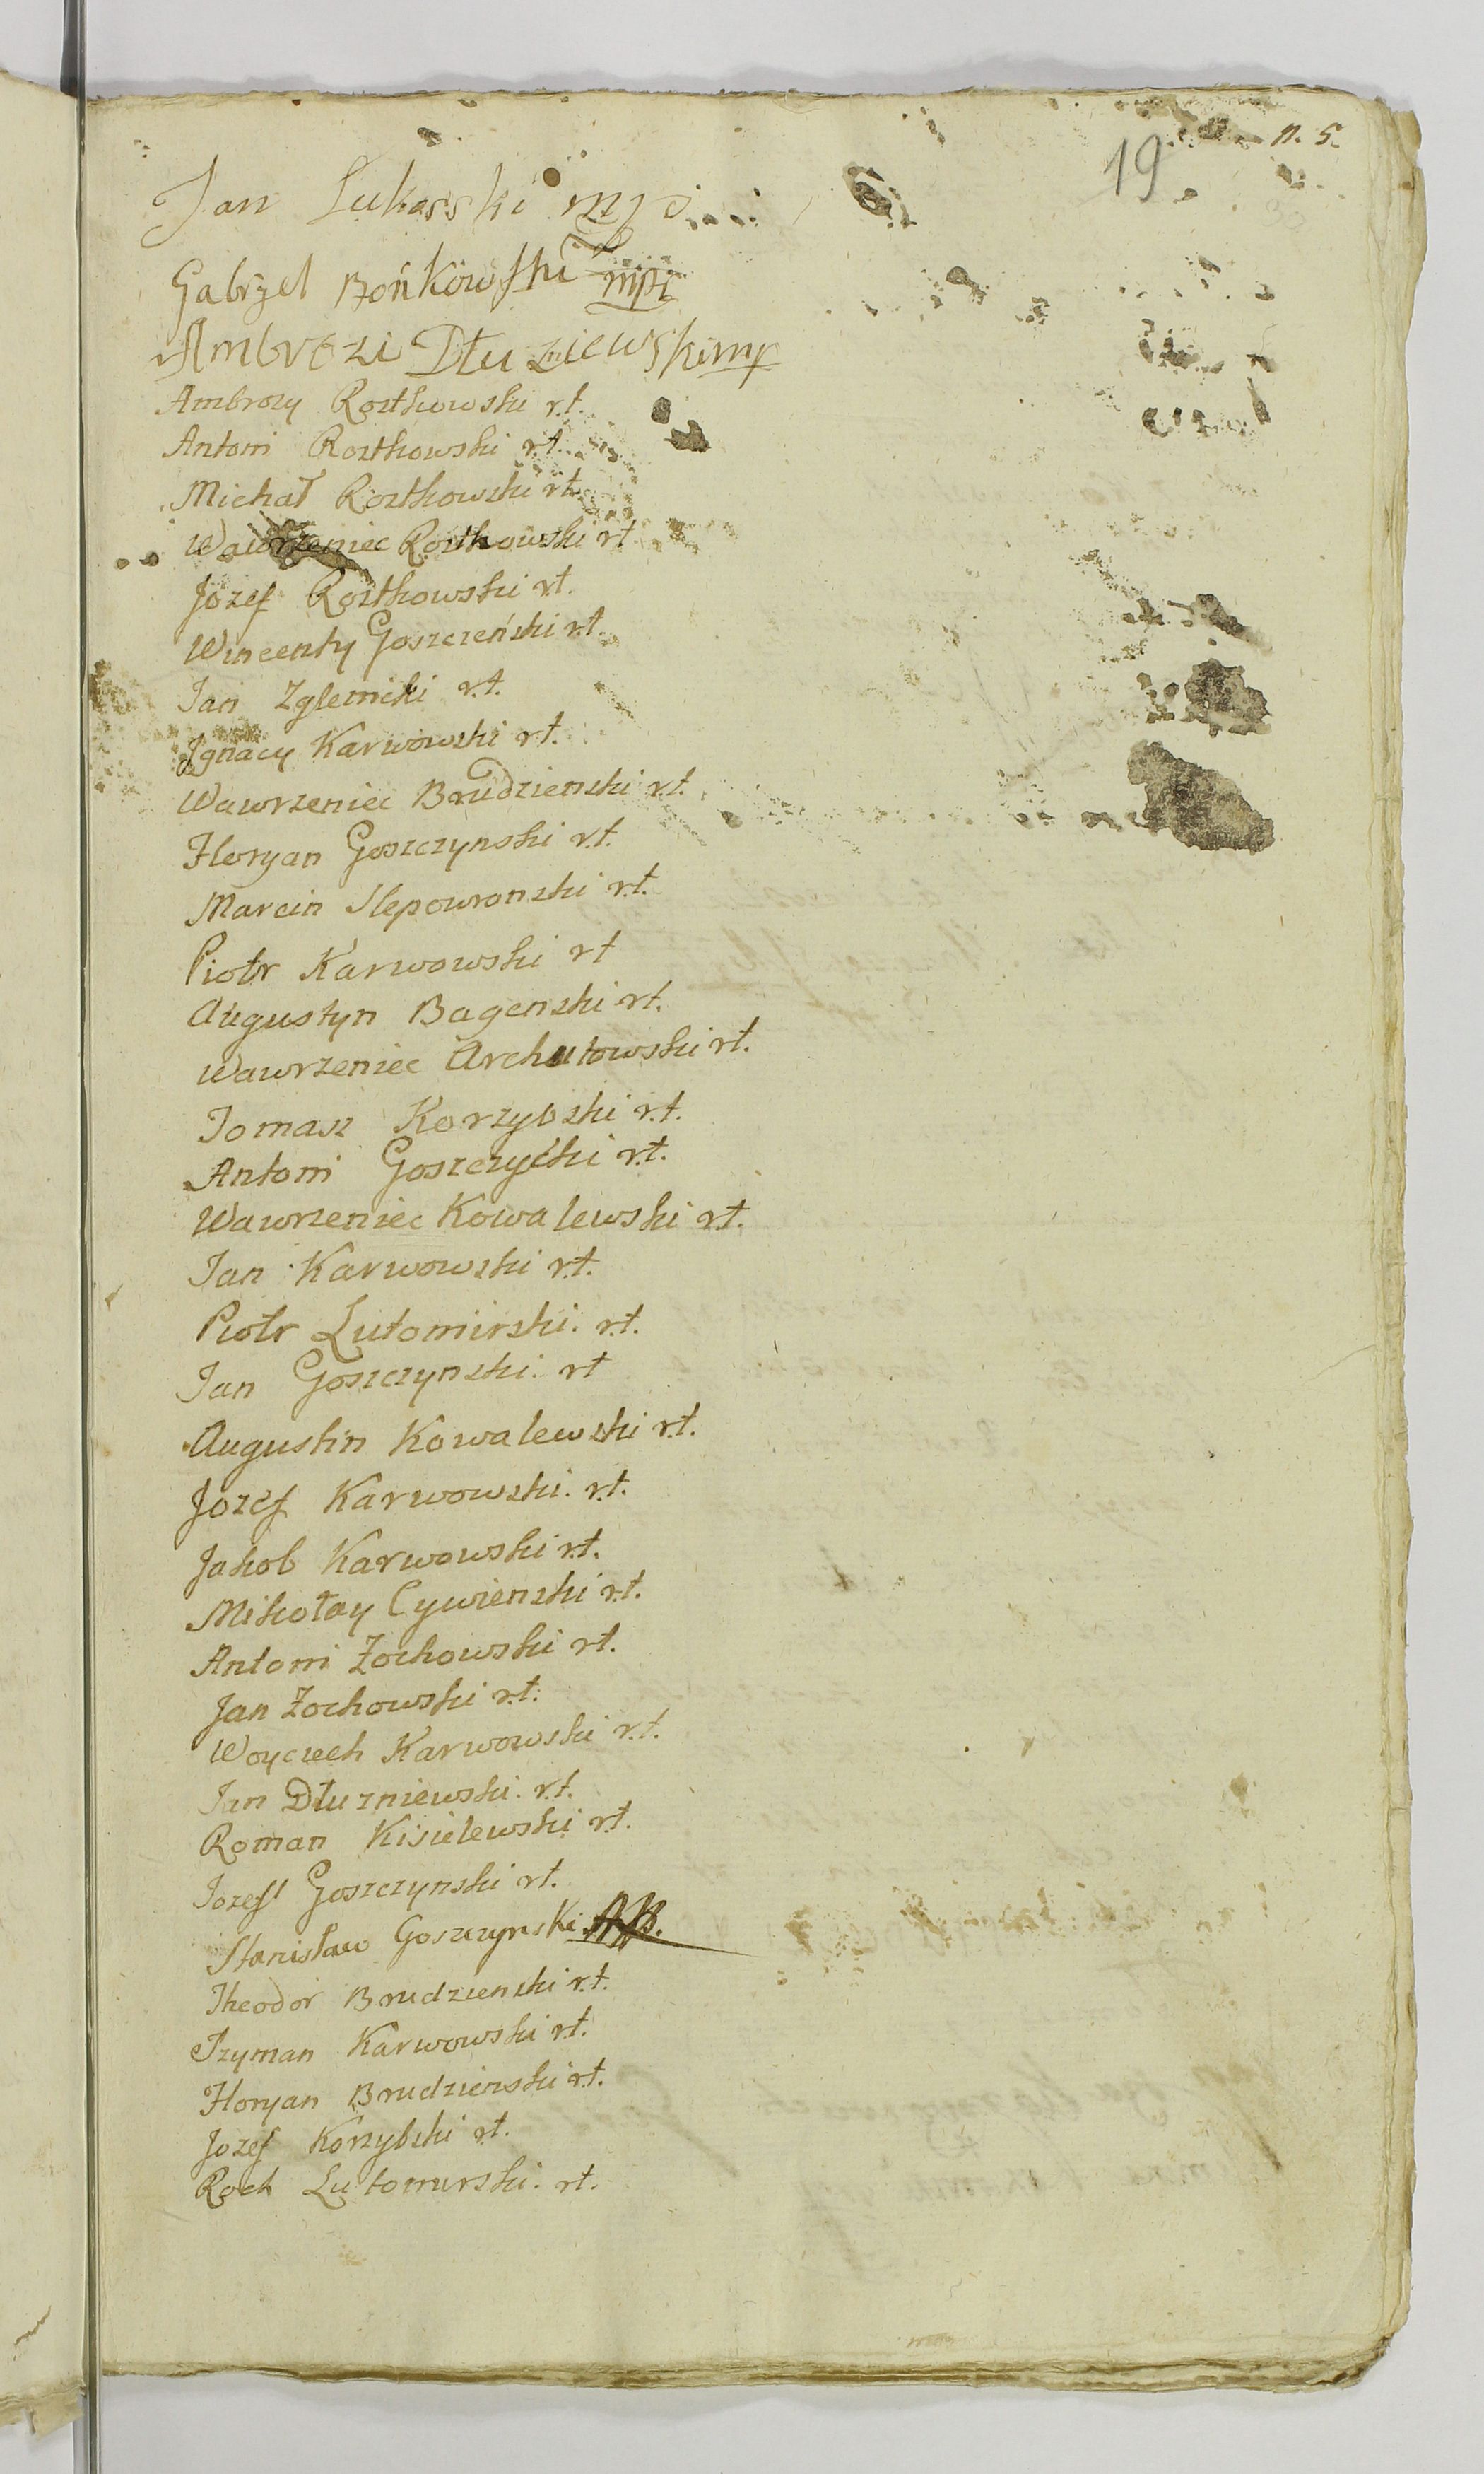 n. 5.
19
Jan Lukasski mp
Gabrÿel Bońkowski mpr
Ambrozi Dłuzniewski mp
Ambrozy Rostkowski r.t.
Antoni Rostkowski r.t.
Michał Rostkowski r.t.
Wawrzeniec Rostkowski r.t
Józef Rostkowski r.t.
Wincenty Goszczeński r.t.
Jan Zglenicki r.t.
Jgnacy Karwowski r.t.
Wawrzeniec Brudzienski r.t.
Floryan Goszczynski r.t.
Marcin Slepowronski r.t.
Piotr Karwowski r.t
Augustyn Bagenski r.t.
Wawrzeniec Archutowski r.t.
Tomasz Korzybski r.t.
Antoni Goszczyćki r.t.
Wawrzeniec Kowalewski r.t.
Jan Karwowski r.t.
Piotr Lutomirski. r.t.
Jan Goszczynski. r.t
Augustin Kowalewski r.t.
Jozef Karwowski. r.t.
Jakob Karwowski r.t.
Mikołay Cywienski r.t.
Antoni Zochowski r.t.
Jan Zochowski r.t.
Woyciech Karwowski r.t.
Jan Dłuzniewski. r.t.
Roman Kisielewski r.t.
Jozeff Goszczynski r.t.
Stanisław Goszczynski
Theodor Brudzienski r.t.
Szyman Karwowski r.t.
Floryan Brudzienski r.t.
Jozef Korzybski r.t.
Roch Lutomirski. r.t.